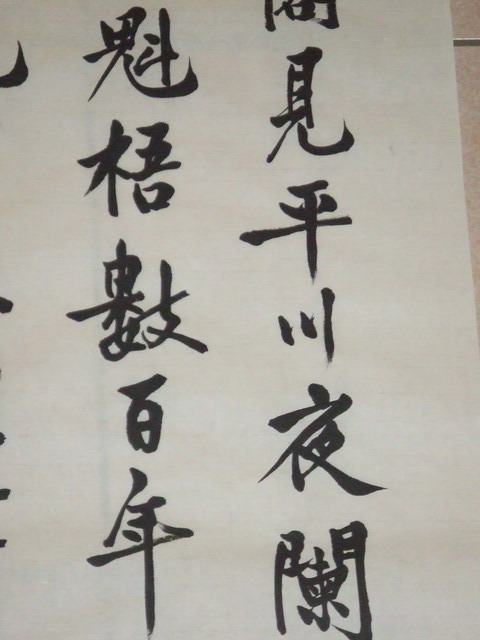 見平川夜闌
魁梧數百年